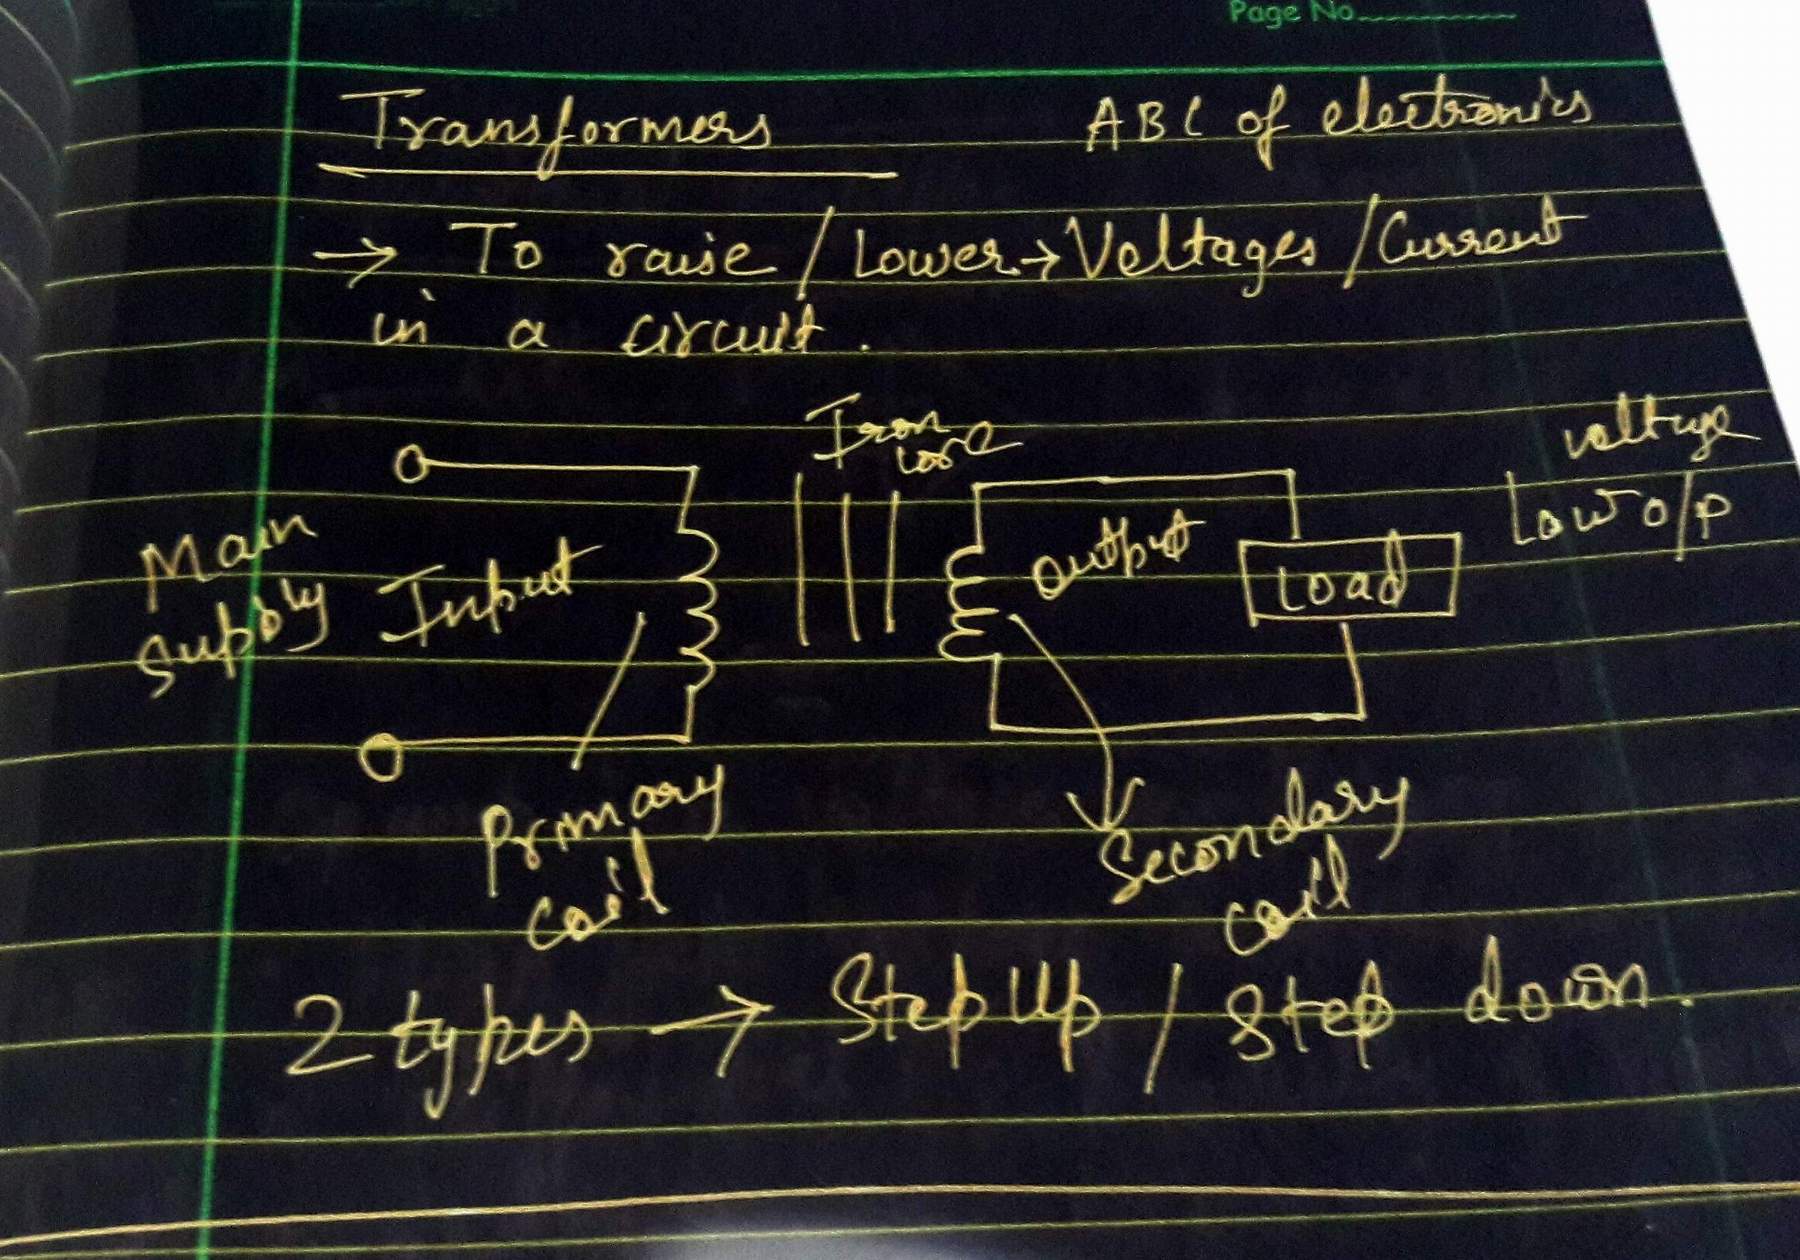 Page No.
Transformers
ABC of electronics
→ To raise / Lower → Voltages / Current
in a circuit.
Iron
core
voltage
Low o/p
Main
supply
Input
output
Load
Primary
coil
Secondary
coil
2 types → Step Up / Step down.